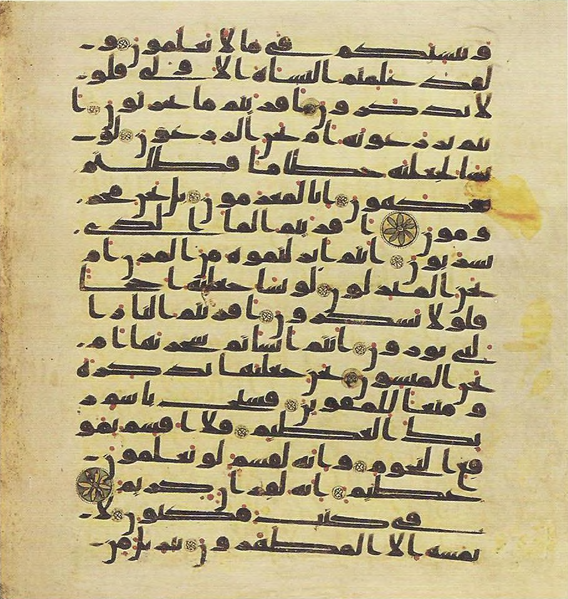 وننشئكم في ما لا تعلمون و
لقد علمتم النشاة الاولى فلو
لا تذكرون افريتم ما تحرثون ا
نتم تزرعونه ام نحن الزرعون لو
نشا لجعلنه حطما فظلتم
تفكهون انا لمغرمون بل نحن محر
ومون افريتم الما الذي
تشربون انتم انزلتموه من المزن ام
نحن المنزلون لو نشا جعلنه اجاجا
فلولا تشكرون افريتم النار ا
لتي تورون انتم انشاتم شجرتها ام
نحن المنشون نحن جعلنها تذكرة
ومتعا للمقوين فسبح باسم ر
بك العظيم فلا اقسم بمو
قع النجوم وانه لقسم لو تعلمون
عظيم انه لقران كريم
في كتب مكنون لا
يمسه الا المطهرون تنزيل من